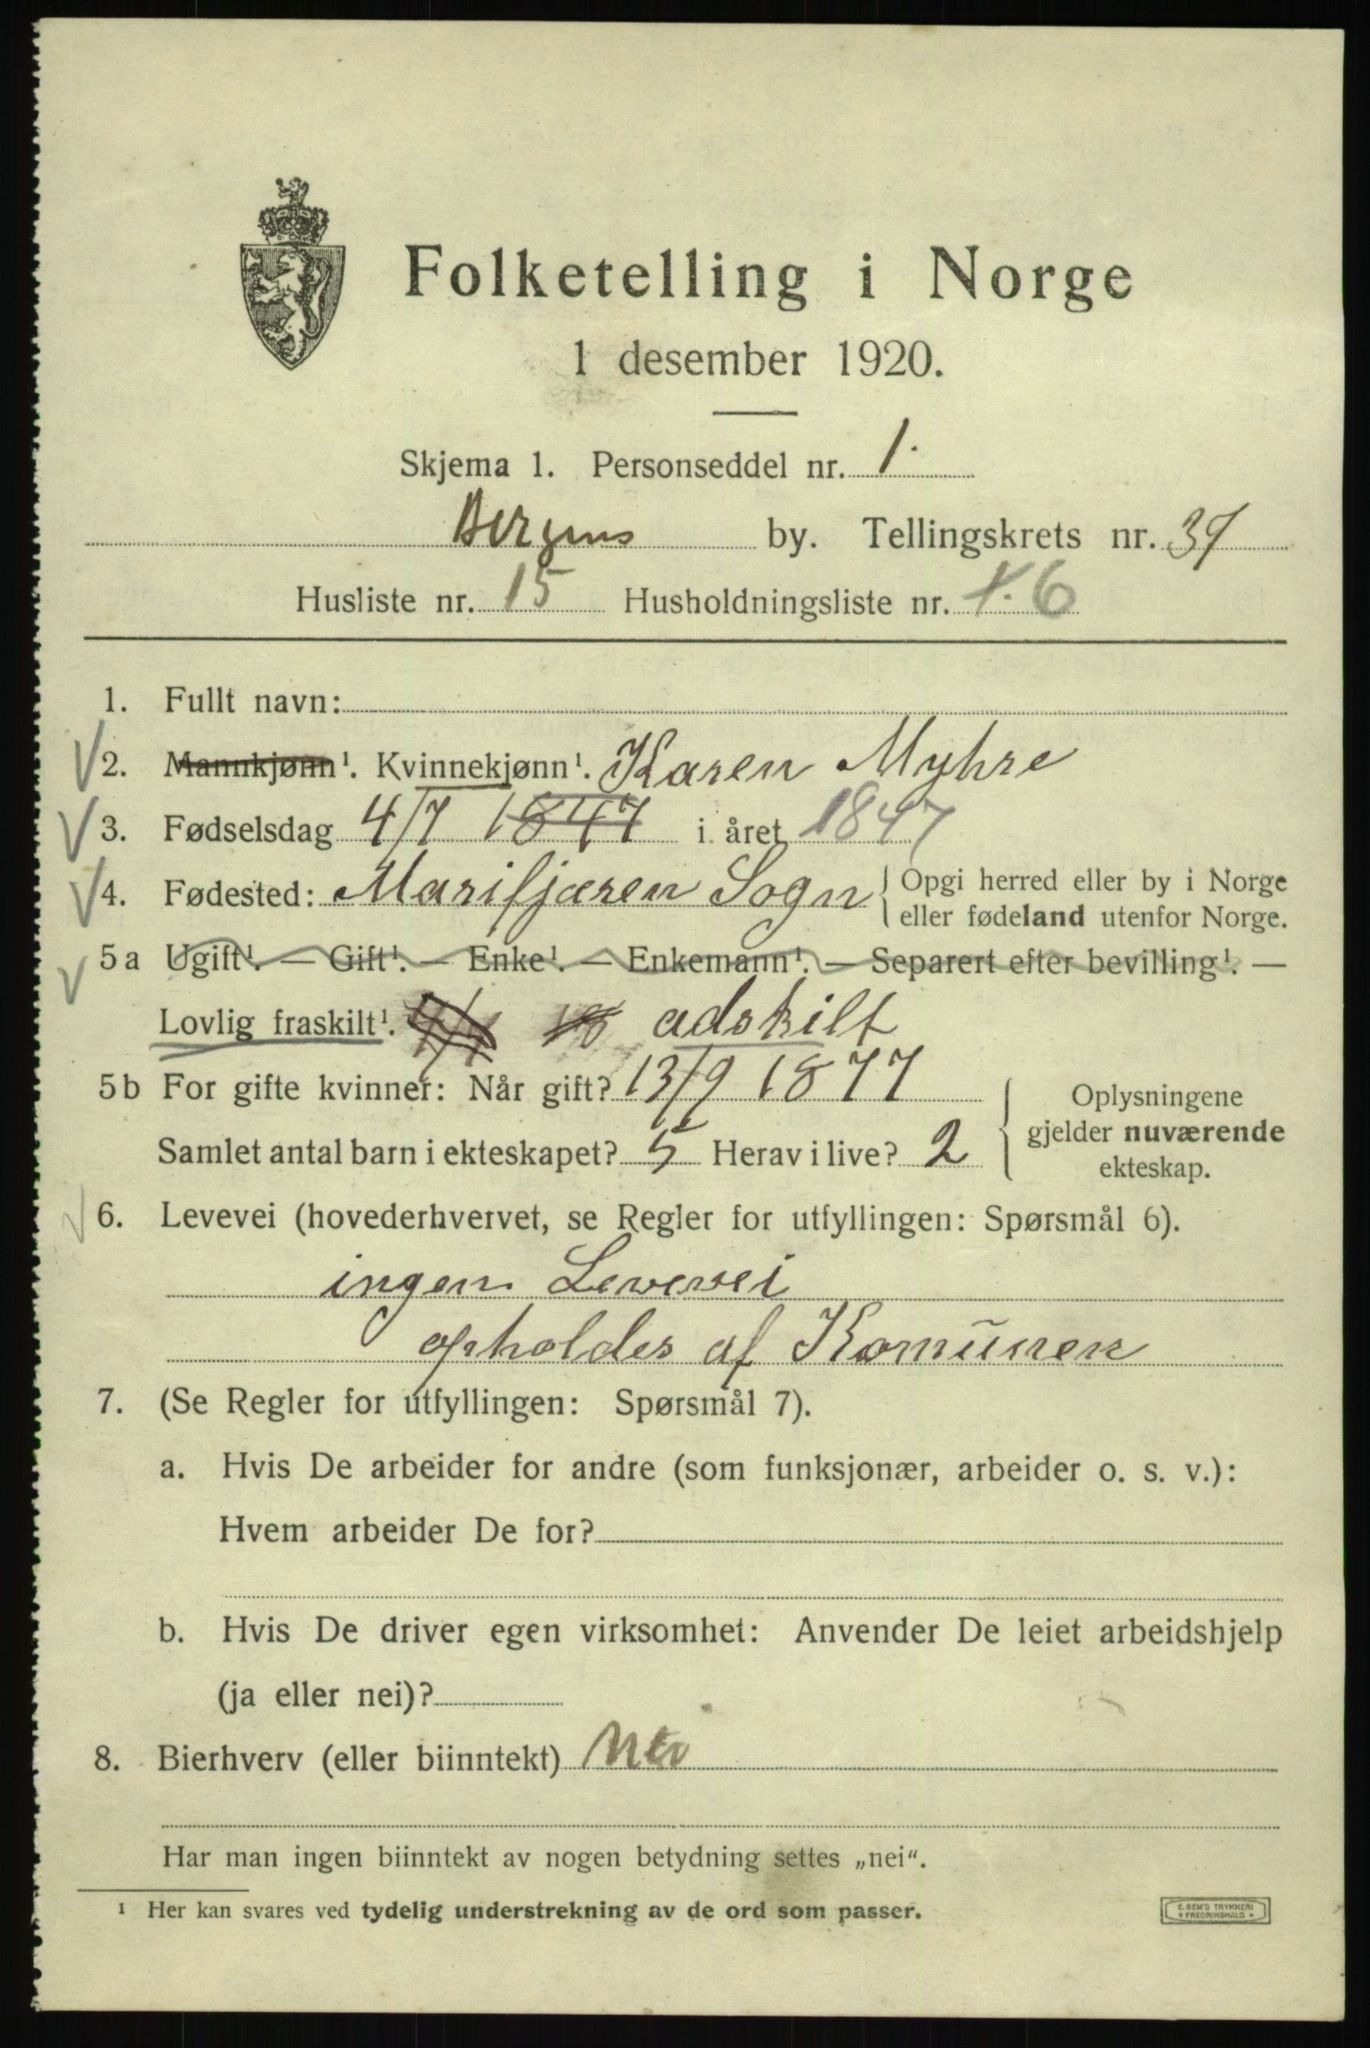 Folketelling i Norge
1 desember 1920.
Skjema 1. Personseddel nr. 1.
Bergens by. Tellingskrets nr. 37
Husliste nr. 15 Husholdningsliste nr. 1. 6
1. Fullt navn:
2. Mannkjønn¹. Kvinnekjønn¹. Karen Myhre
3. Fødselsdag 4/7 1847 i året 1847
4. Fødested: Marifjæren Sogn { Opgi herred eller by i Norge
eller fødeland utenfor Norge.
5 a Ugift¹. — Gift¹. — Enke¹. — Enkemann¹. — Separert efter bevilling¹. —
Lovlig fraskilt¹. adskilt
5 b For gifte kvinner: Når gift? 13/9 1877
Samlet antal barn i ekteskapet? 5 Herav i live? 2
Oplysningene
gjelder nuværende
ekteskap.
6. Levevei (hovederhvervet, se Regler for utfyllingen: Spørsmål 6).
ingen Levevei
opholdes af Komunen
7. (Se Regler for utfyllingen: Spørsmål 7).
a. Hvis De arbeider for andre (som funksjonær, arbeider o. s. v.):
Hvem arbeider De for?
b. Hvis De driver egen virksomhet: Anvender De leiet arbeidshjelp
(ja eller nei)?
8. Bierhverv (eller biinntekt) Nei
Har man ingen biinntekt av nogen betydning settes „nei“.
¹ Her kan svares ved tydelig understrekning av de ord som passer.
E. SEM'S TRYKKERI
* FREDRIKSHALD *